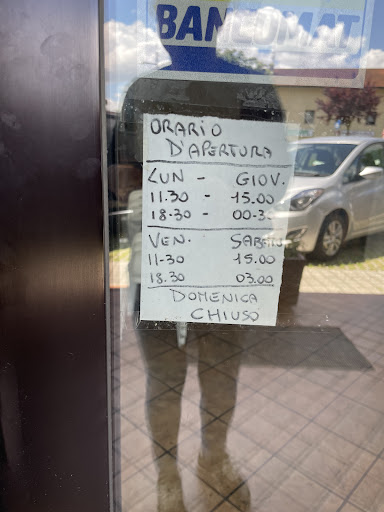 BANCOMAT
ORARIO
D'APERTURA
LUN - GIOV.
11.30 - 15.00
18.30 - 00-30
VEN. SABATO
11-30 15.00
18.30 03.00
DOMENICA
CHIUSO